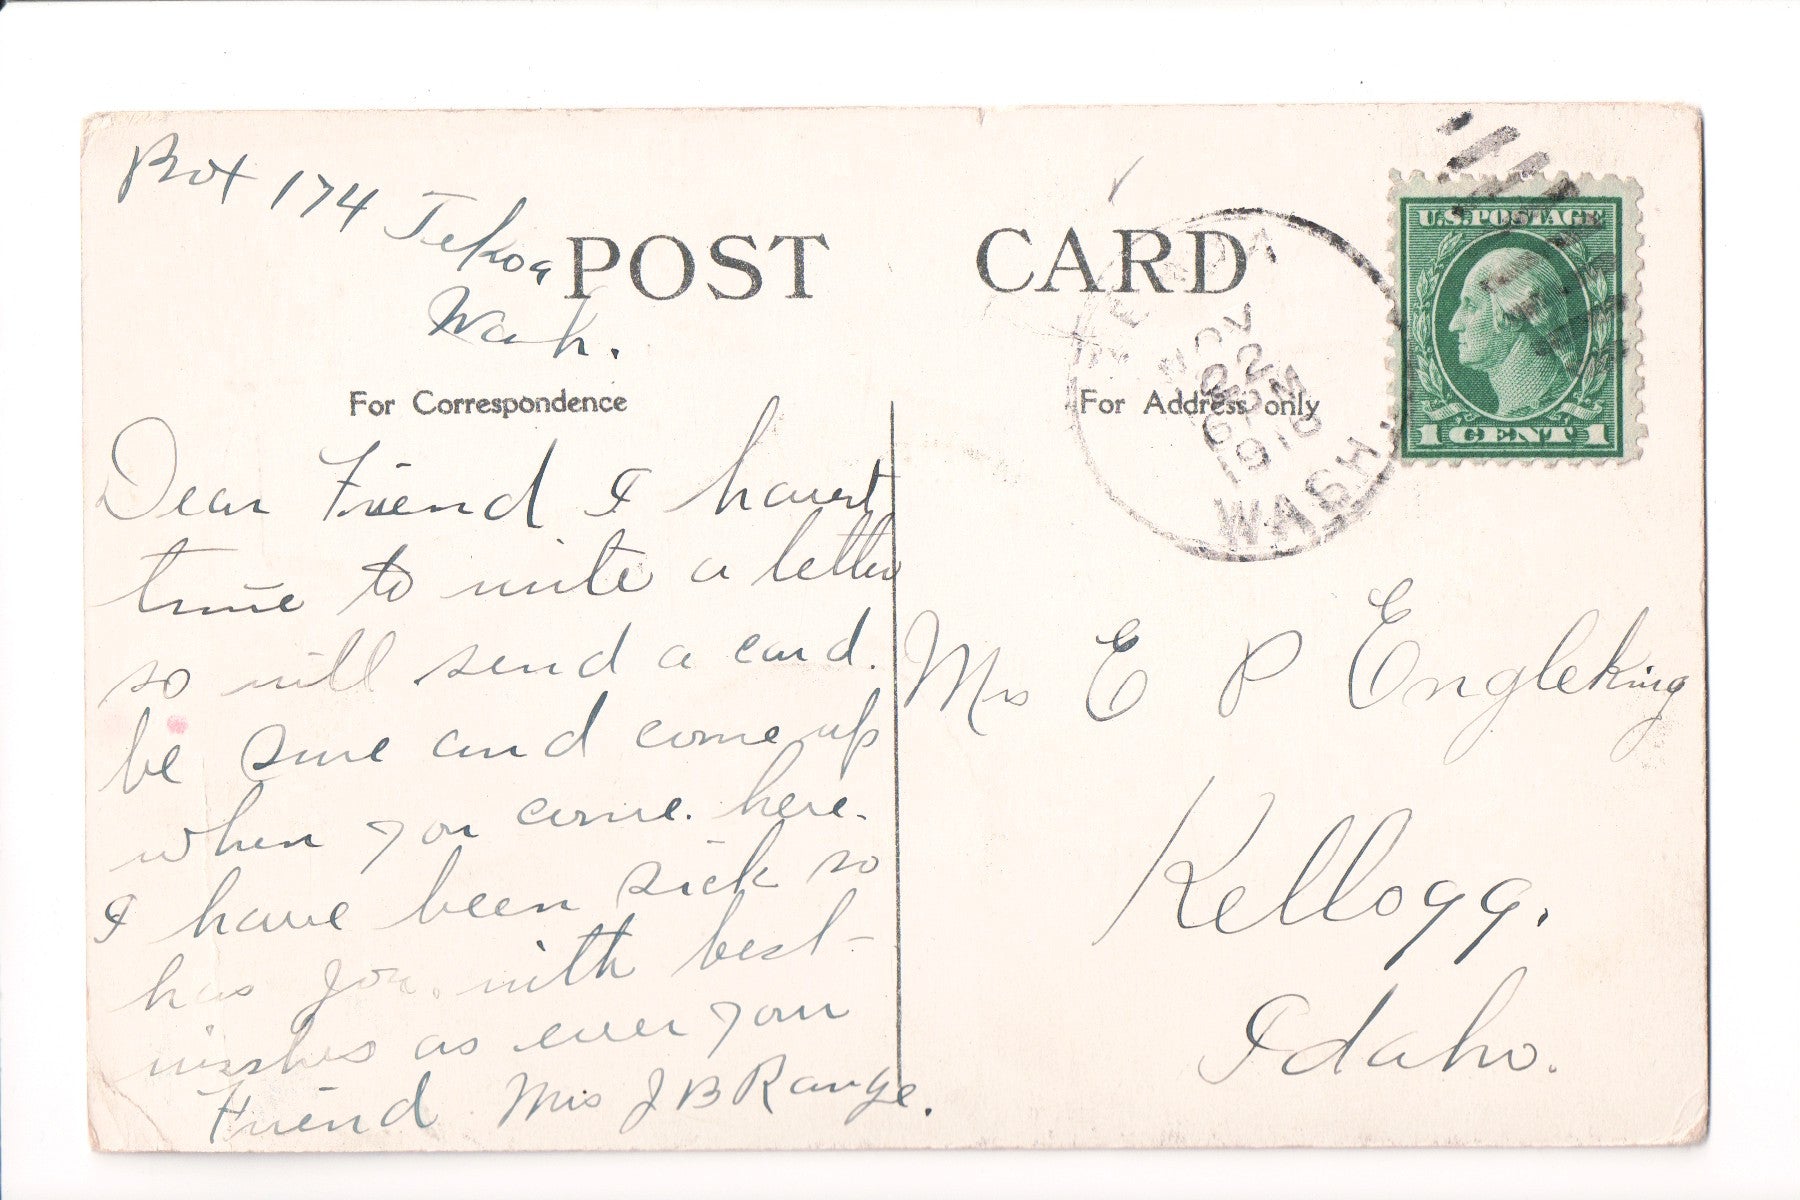 Box 174 Tekoa
Wash.
POST CARD
For Correspondence
For Address only
U.S. POSTAGE
1 CENT 1
NOV
22
6 PM
WASH.
Dear Friend I havent
time to write a letter
so will send a card.
be sure and come up
when you come. here.
I have been sick so
has Joe. with best
wishes as ever your
Friend Mrs J B Range.
Mrs E P Engleking
Kellogg.
Idaho.